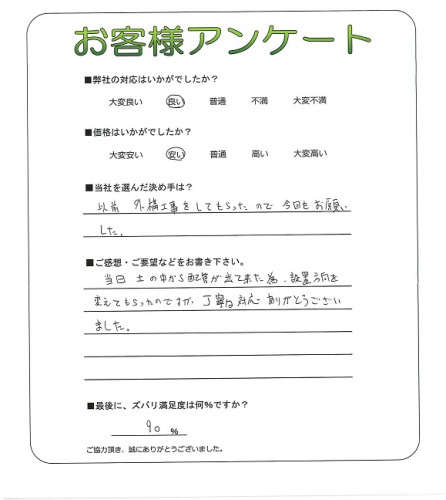 お客様アンケート
■弊社の対応はいかがでしたか？
大変良い 良い 普通 不満 大変不満
■価格はいかがでしたか？
大変安い 安い 普通 高い 大変高い
■当社を選んだ決め手は？
以前 外構工事をしてもらったので 今回もお願い
した。
■ご感想・ご要望などをお書き下さい。
当日 土の中から配管が出て来た為、設置方向を
変えてもらったのですが、丁寧な対応 ありがとうござい
ました。
■最後に、ズバリ満足度は何％ですか？
90 %
ご協力頂き、誠にありがとうございました。